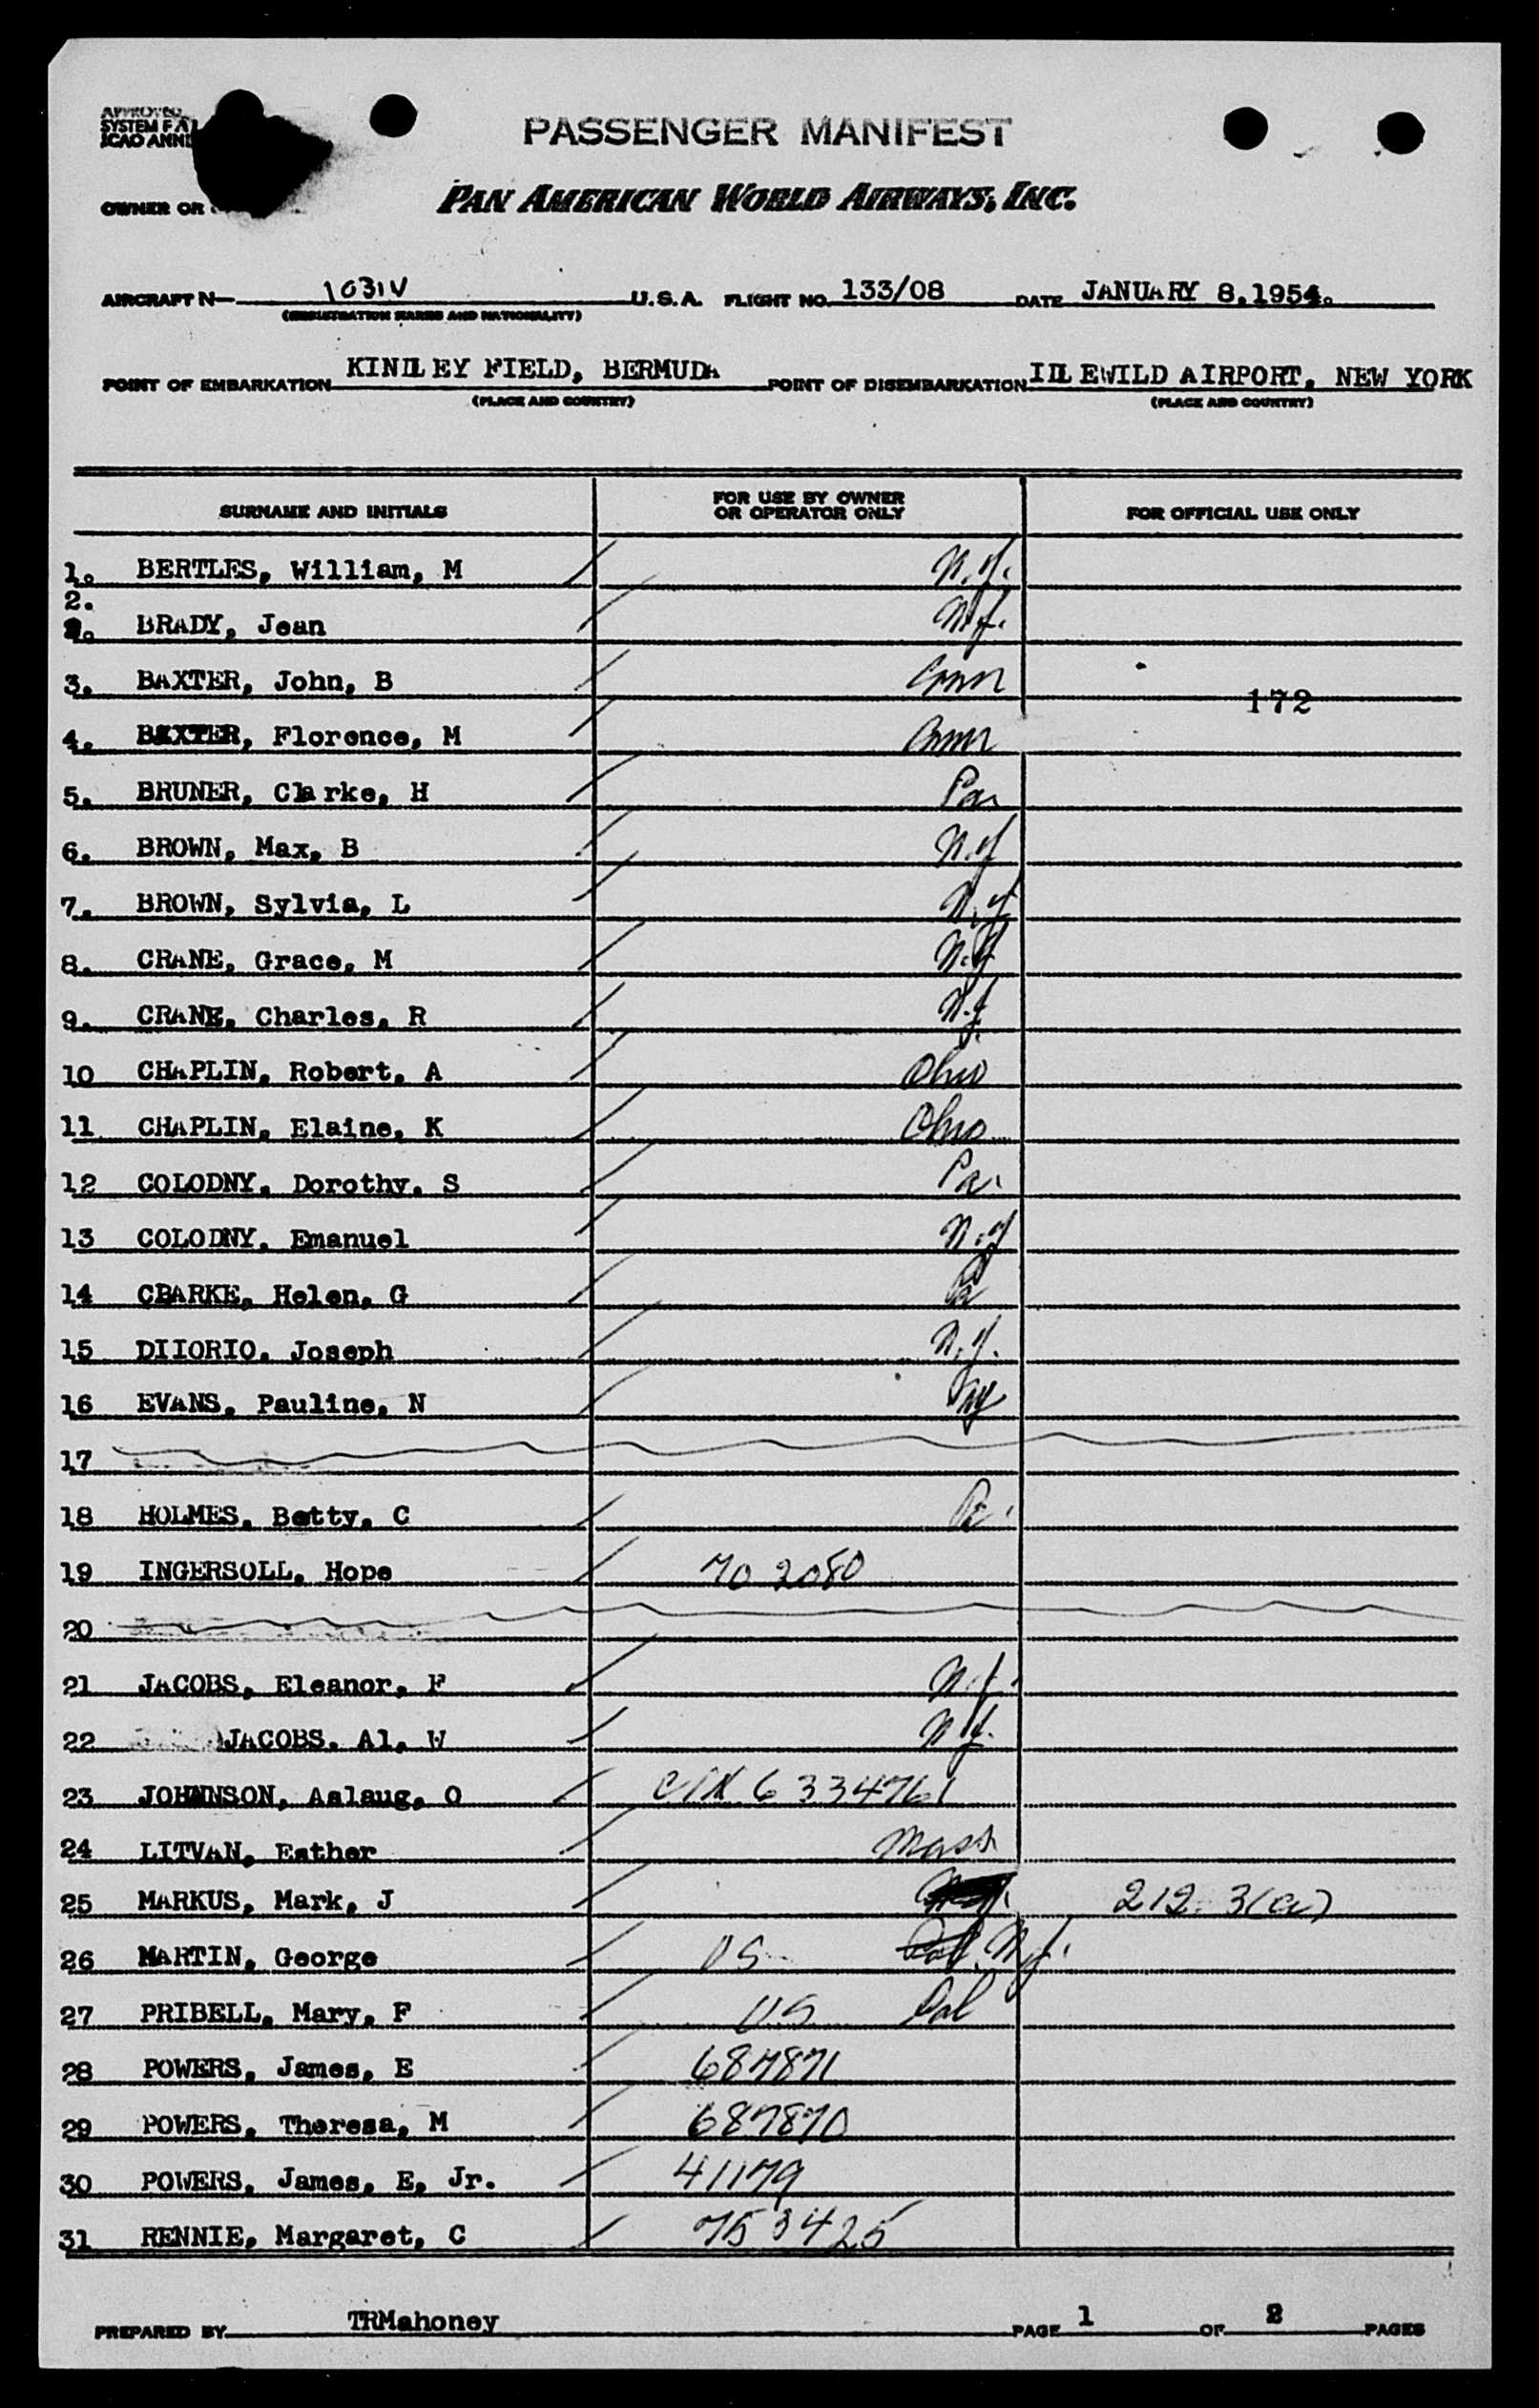 APPROVED
SYSTEM
ICAO
PASSENGER MANIFEST
OWNER OR
PAN AMERICAN WORLD AIRWAYS, INC.
AIRCRAFT N— 1031V U.S.A. FLIGHT NO. 133/08 DATE JANUARY 8,1954.
(REGISTRATION MARKS AND NATIONALITY)
POINT OF EMBARKATION KINDLEY FIELD, BERMUDA POINT OF DISEMBARKATION IDLEWILD AIRPORT, NEW YORK
(PLACE AND COUNTRY) (PLACE AND COUNTRY)
SURNAME AND INITIALS FOR USE BY OWNER OR OPERATOR ONLY FOR OFFICIAL USE ONLY
1. BERTLES, William, M N.Y.
2.
2. BRADY, Jean N.Y.
3. BAXTER, John, B Conn
172
4. BAXTER, Florence, M Conn
5. BRUNER, Clarke, H Pa
6. BROWN, Max, B N.Y
7. BROWN, Sylvia, L N.Y
8. CRANE, Grace, M N.Y
9. CRANE, Charles, R N.Y
10 CHAPLIN, Robert, A Ohio
11 CHAPLIN, Elaine, K Ohio
12 COLODNY, Dorothy, S Pa.
13 COLODNY, Emanuel N.Y
14 CLARKE, Helen, G Pa
15 DIIORIO, Joseph N.Y.
16 EVANS, Pauline, N NY
17
18 HOLMES, Betty, C Pa.
19 INGERSOLL, Hope 702080
20
21 JACOBS, Eleanor, F N.Y.
22 JACOBS, Al, W N.Y.
23 JOHNNSON, Aslaug, O 6334761
24 LITVAN, Esther Mass
25 MARKUS, Mark, J 212.3(a)
26 MARTIN, George US N.Y.
27 PRIBELL, Mary, F US Cal
28 POWERS, James, E 687871
29 POWERS, Theresa, M 687870
30 POWERS, James, E, Jr. 41179
31 RENNIE, Margaret, C 753425
PREPARED BY TRMahoney PAGE 1 OF 2 PAGES